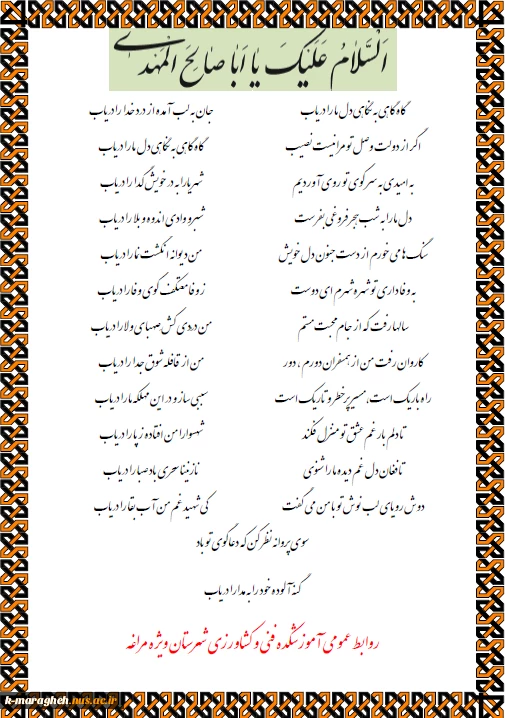 السَّلامُ عَلَیْکَ یا اَبا صالِحَ المَهْدی
گاه گاهی به نگاهی دل ما را دریاب جان به لب آمده از درد خدا را دریاب
اگر از دولت وصل تو مرا نیست نصیب گاه گاهی به نگاهی دل ما را دریاب
به امیدی به سر کوی تو روی آوردیم شهریارا به در خویش گدا را دریاب
دل ما را به شب هجر فروغی بفرست شبرو وادی اندوه و بلا را دریاب
سنگ ها می خورم از دست جنون دل خویش من دیوانه انگشت نما را دریاب
به وفاداری تو شهره شهرم ای دوست ز وفا معتکف کوی وفا را دریاب
سالها رفت که از جام محبت مستم من دردی کش صهبای ولا را دریاب
کاروان رفت من از همسفران دورم ، دور من از قافله شوق جدا را دریاب
راه باریک است، مسیر پر خطر و تاریک است سببی ساز و در این مهلکه ما را دریاب
تا دلم بار غم عشق تو منزل فکند شهسوارا من افتاده ز پا را دریاب
تا فغان دل غم دیده ما را شنوی نازنینا سحری باد صبا را دریاب
دوش رویای لب نوش تو با من می گفت کی شهید غم من آب بقا را دریاب
سوی پروانه نظر کن که دعاگوی تو باد
گنه آلوده خود را به مدارا دریاب
روابط عمومی آموزشکده فنی و کشاورزی شهرستان ویژه مراغه
k-maragheh.nus.ac.ir